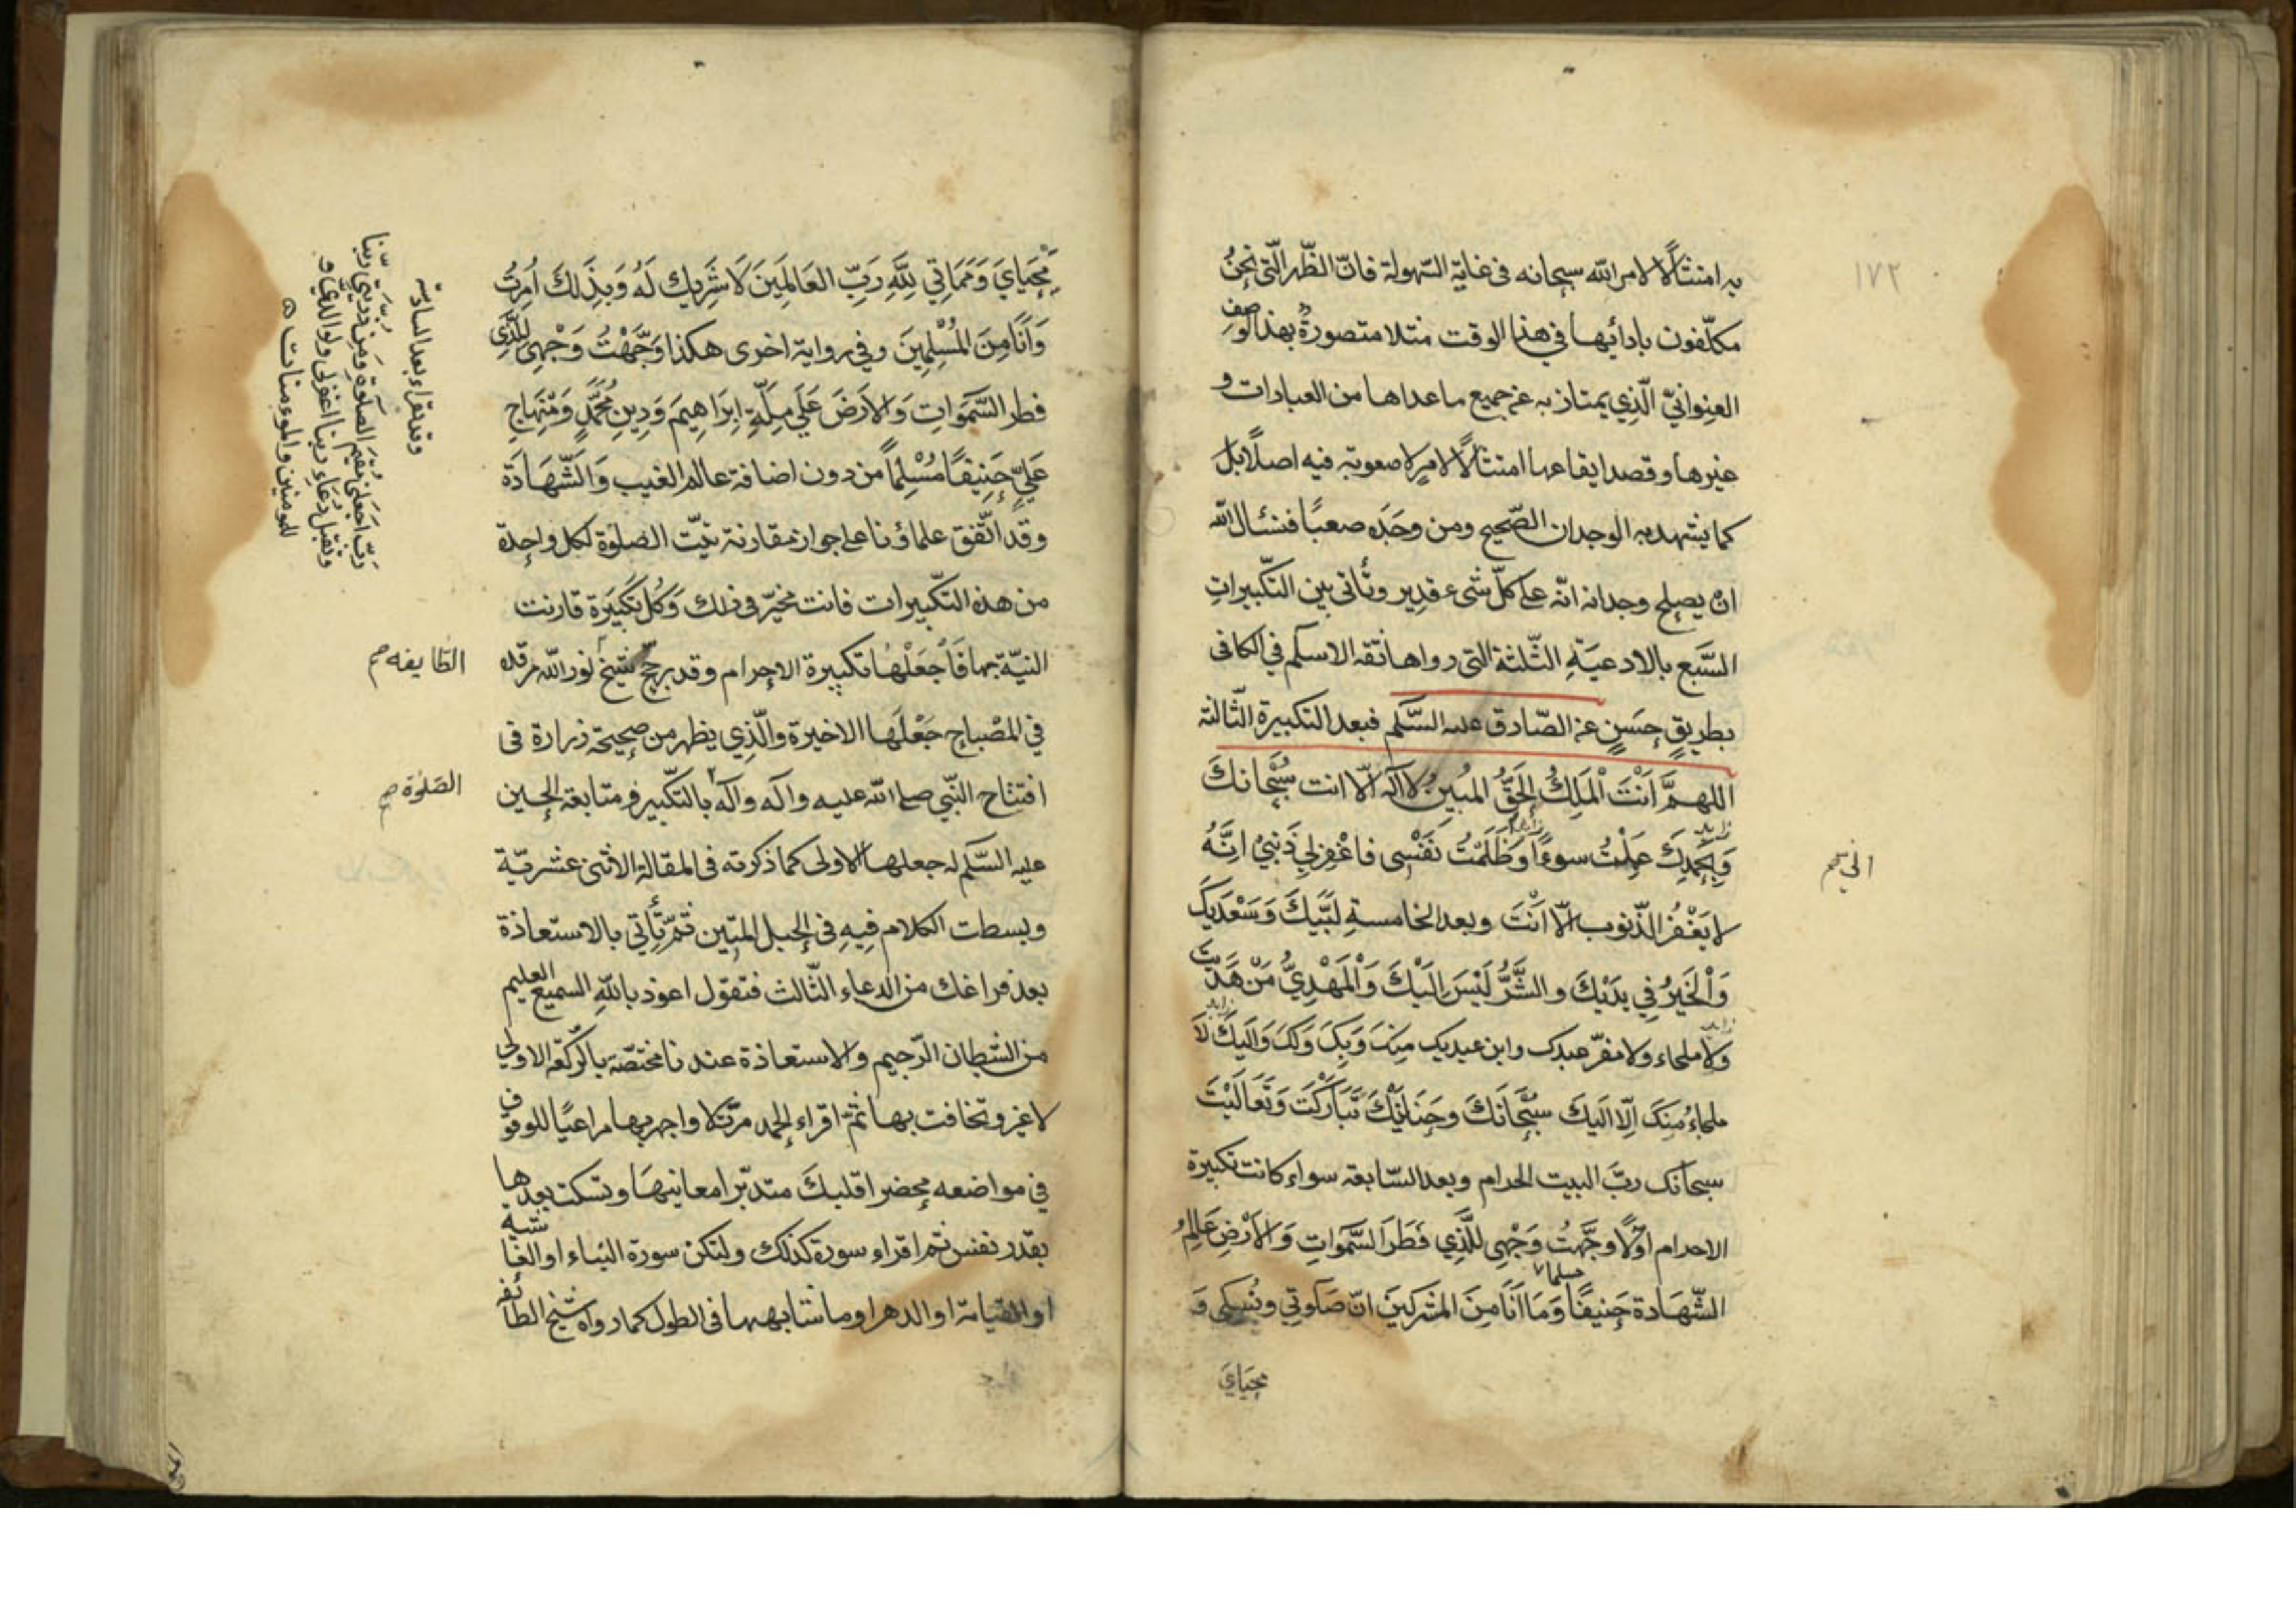 ١٧٢
به امتثالًا لامر الله سبحانه فى غاية السّهولة فانّ الظّهر الّتى نحنُ
مكلّفون بادائها في هذا الوقت مثلا متصورةٌ بهذا الوصف
العنوانيّ الّذي يمتاز به عن جميع ما عداها من العبادات و
غيرها وقصد ايقاعها امتثالًا لامرٍ لا صعوبة فيه اصلًا بل
كما يشهد به الوجدان الصّحيح ومن وجَدَه صعبًا فنسئال الله
انْ يصلح وجدانه انّه على كلّ شىء قدير وتأتى بين التكّبيراتِ
السَّبع بالادعيَةِ الثّلثة التى رواها ثقه الاسلم في الكافى
بطريقٍ حسَنٍ عن الصّادق عليه السَّلم فبعد التكبيرة الثّالثة
اللهمَّ اَنْتَ الْمَلِكُ الحَقُّ المُبينُ لا آله الّا انت سُبْحانكَ
زايد زايد
وَبِحَمْدِكَ عَمِلْتُ سوءًا وَظَلَمْتُ نَفْسِى فاغْفِرلِي ذَنْبيْ انَّهُ
انّي صح
لا يَغْفُرُ الذّنوب الّا اَنْتَ وبعد الخامسةِ لَبَّيكَ وَسَعْدَيكَ
وَاْلخَيرُ فِي يَدَيْكَ والشَّرُّ لَيْسَ اِلَيْكَ وَاْلمَهْدِيُّ مَنْ هَدَيْتَ
زايد زايد
ولا ملجاء ولا مفرّ عبدك وابن عبديك مِنكَ وَبِكَ وَلَكَ وَاِلَيكَ لاَ
ملجاءُ مِنكَ اِلّا اليكَ سُبْحَانَكَ وحَنَانَيْكَ تَبَارَكْتَ وَتَعَالَيْتَ
سبحانك ربَّ البيت الحرام وبعد السّابعة سواء كانت تكبيرة
الاحرام اوّلًا وجَّهتُ وَجْهِي للَّذِي فَطَرَ السَّمَواتِ وَالاَرْضِ عَالِمُ
مسلما
الشّهَادة حَنيفًا وَمَا اَنَا مِنَ المشركينَ انّ صَلوتِي ونُسكى وَ
محيَايَ
مَحْيَايَ وَمَمَاتِي لِلّهِ رَبِّ العَالمِينَ لَا شَرِيك لَهُ وَبِذَلكَ اُمِرْتُ
وَاَنَا مِنَ المُسْلِمِينَ وفي رواية اخرى هكذا وَجَّهْتُ وَجْهِيَ للَّذِي
فطر السَّمَواتِ وَالاَرضَ عَلَى مِلَّةِ اِبْرَاهِيمَ وَدِينِ مُحَمَّدٍ وَمِنْهاجِ
عَلِيٍّ حَنِيفًا مُسْلِماً من دون اضافة عالم الغيب وَالشَّهَادَة
وقد اتّفق علماؤنا على جواز مقارنة نيّت الصلوٰة لكل واحدة
من هذه التكّبيرات فانت مخيّر فى ذلك وَكُل تكبَيرة قارنت
النيّة بها فَاجْعَلْهَا تكبيرة الاحرام وقد رجّح شيخ نور الله مرقده
الطّايفه صح
في المْصباح جَعْلَها الاخيرة والّذِي يظهر من صحيحة زرارة فى
افتتاح النَّبي صلى الله عليه وآله وآله بالتكّبير و متابعة الحسين
الصّلوٰة صح
عليه السَّلم له جعلها الاولى كما ذكرته فى المقالة الاثنى عشريّة
وبسطت الكلام فِيهِ فى الحبل المتين ثمّ تأتي بالاستعاذة
بعد فراغك من الدعاء الثّالث فتقول اعوذ بالله السميع العليم
من الشطان الرّجيم والاستعاذة عندنا مختصّة بالركعة الاولى
لا غير وتخافت بها ثمّ اقراء الحمد مرتّلا واجهر بها مراعيًا للوقوف
في مواضعه محضرا قلبكَ متدبّرا معانيهَا وتسكت بعدها
بقدر نفس ثم اقراء سورة كذلك ولتكن سورة النباء او الغاشية
او القيامة او الدهر او ما شابهها فى الطول كما رواه شيخ الطائفه
وقد يقراء بعد السادسة
ربّ اجعلنى مُقيمَ الصّلوةِ ومن ذريتي ربّنا
وتقبّل دُعاءِ ربنا اغفرلى ولوالديّ و
للمومنين والمومنات